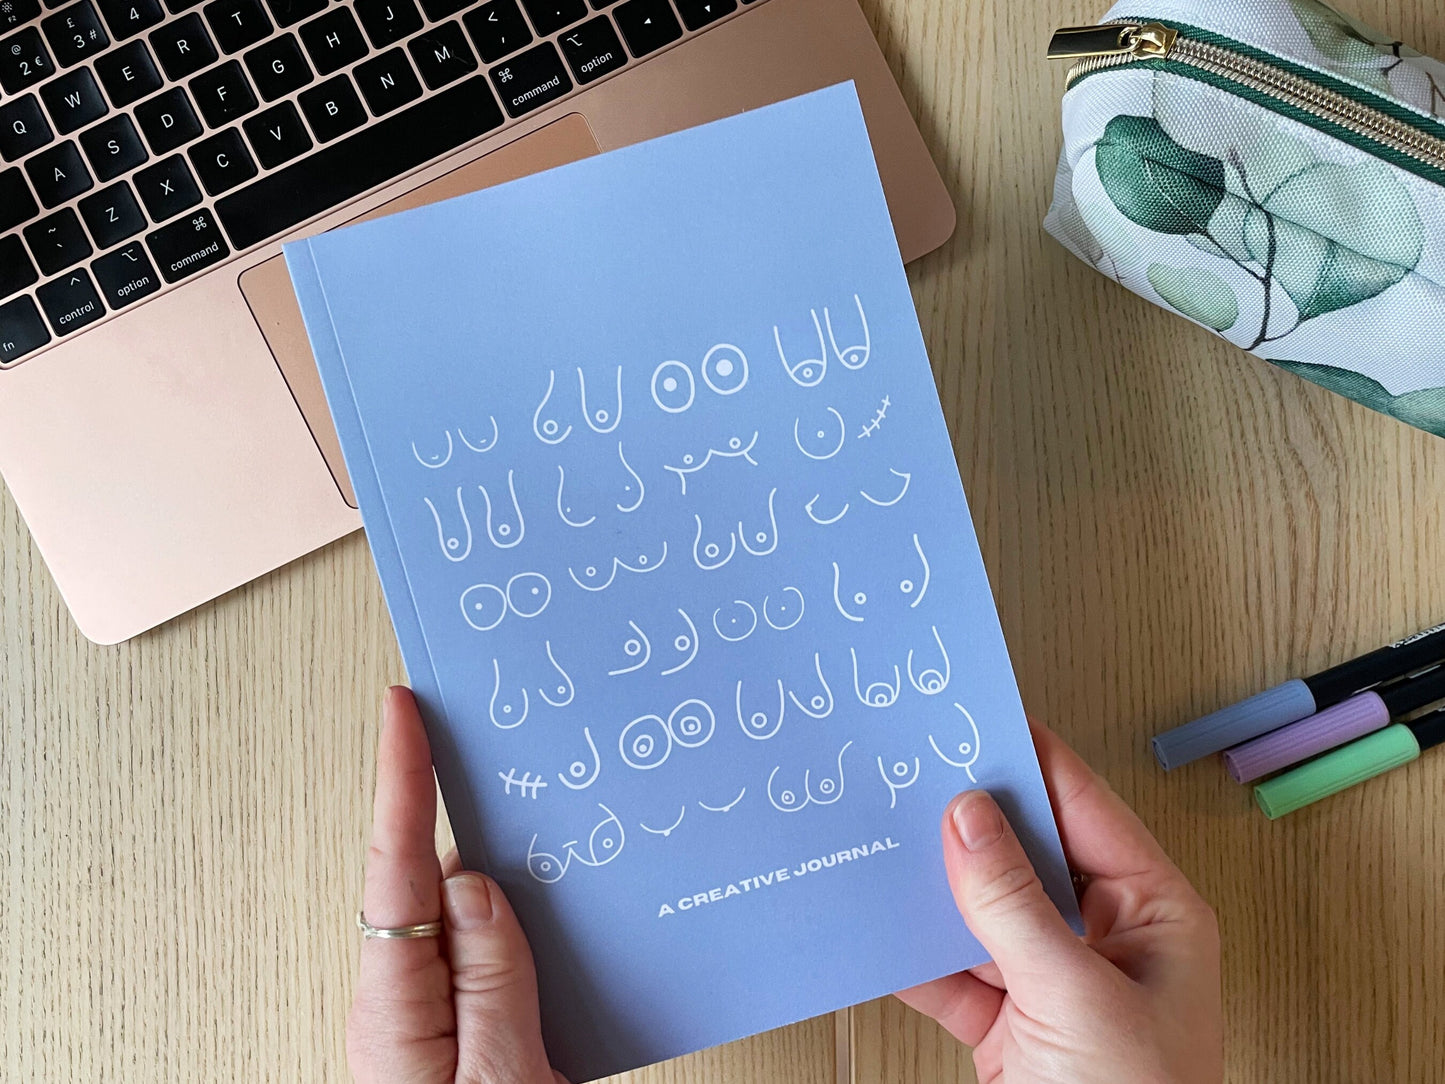 F2
£
3 #
4
@
2 €
W
E
R
T
J
L
Q
A
S
D
F
G
H
<
,
~
`
Z
X
C
V
B
N
M
⌘
command
⌥
option
◂
fn
^
control
⌥
option
⌘
command
A CREATIVE JOURNAL